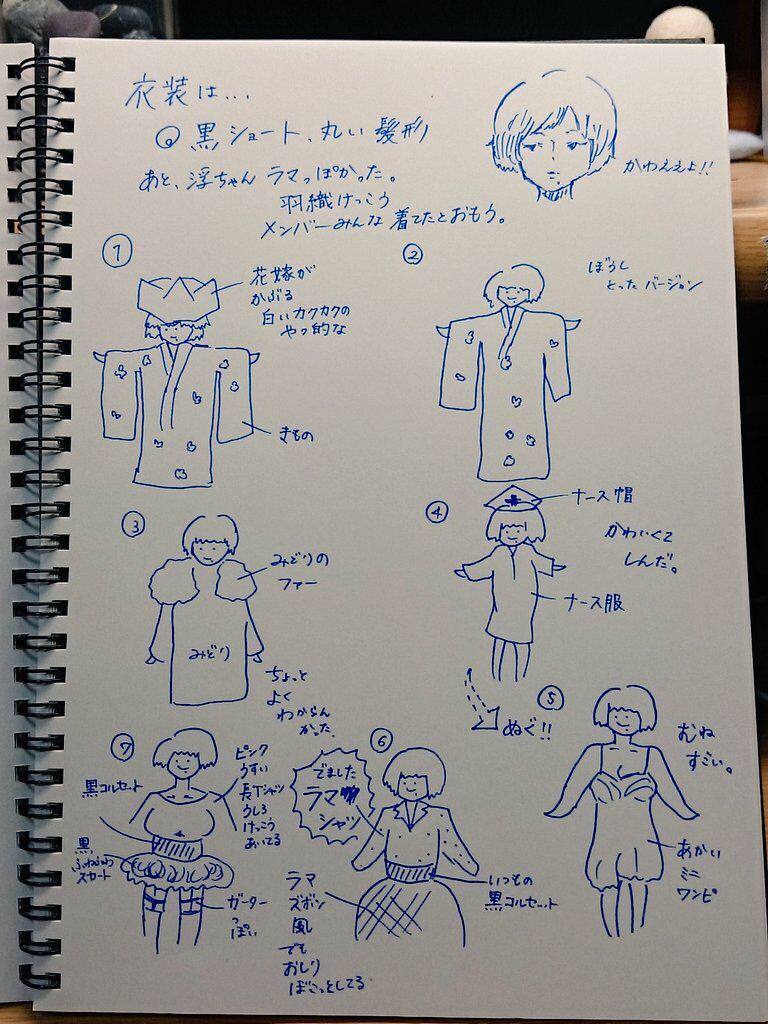 衣装は...
◎黒ショート、丸い髪形
かわええよ!!
あと、浮ちゃん ラマっぽかった。
羽織けっこう
メンバーみんな着てたとおもう。
①
花嫁が
かぶる
白いカクカクの
やつ的な
きもの
②
ぼうし
とったバージョン
③
みどりの
ファー
みどり
ちょっと
よく
わからん
かった
④
ナース帽
かわいくて
しんだ。
ナース服
ぬぐ!!
⑤
むね
すごい。
あかい
ミニ
ワンピ
⑥
でました
ラマ
シャツ
いつもの
黒コルセット
ラマ
ズボン
風
でも
おしり
ぼこっとしてる
⑦
ピンク
うすい
長Tシャツ
うしろ
けっこう
あいてる
黒コルセット
黒
ふわふわ
スカート
ガーター
っぽい